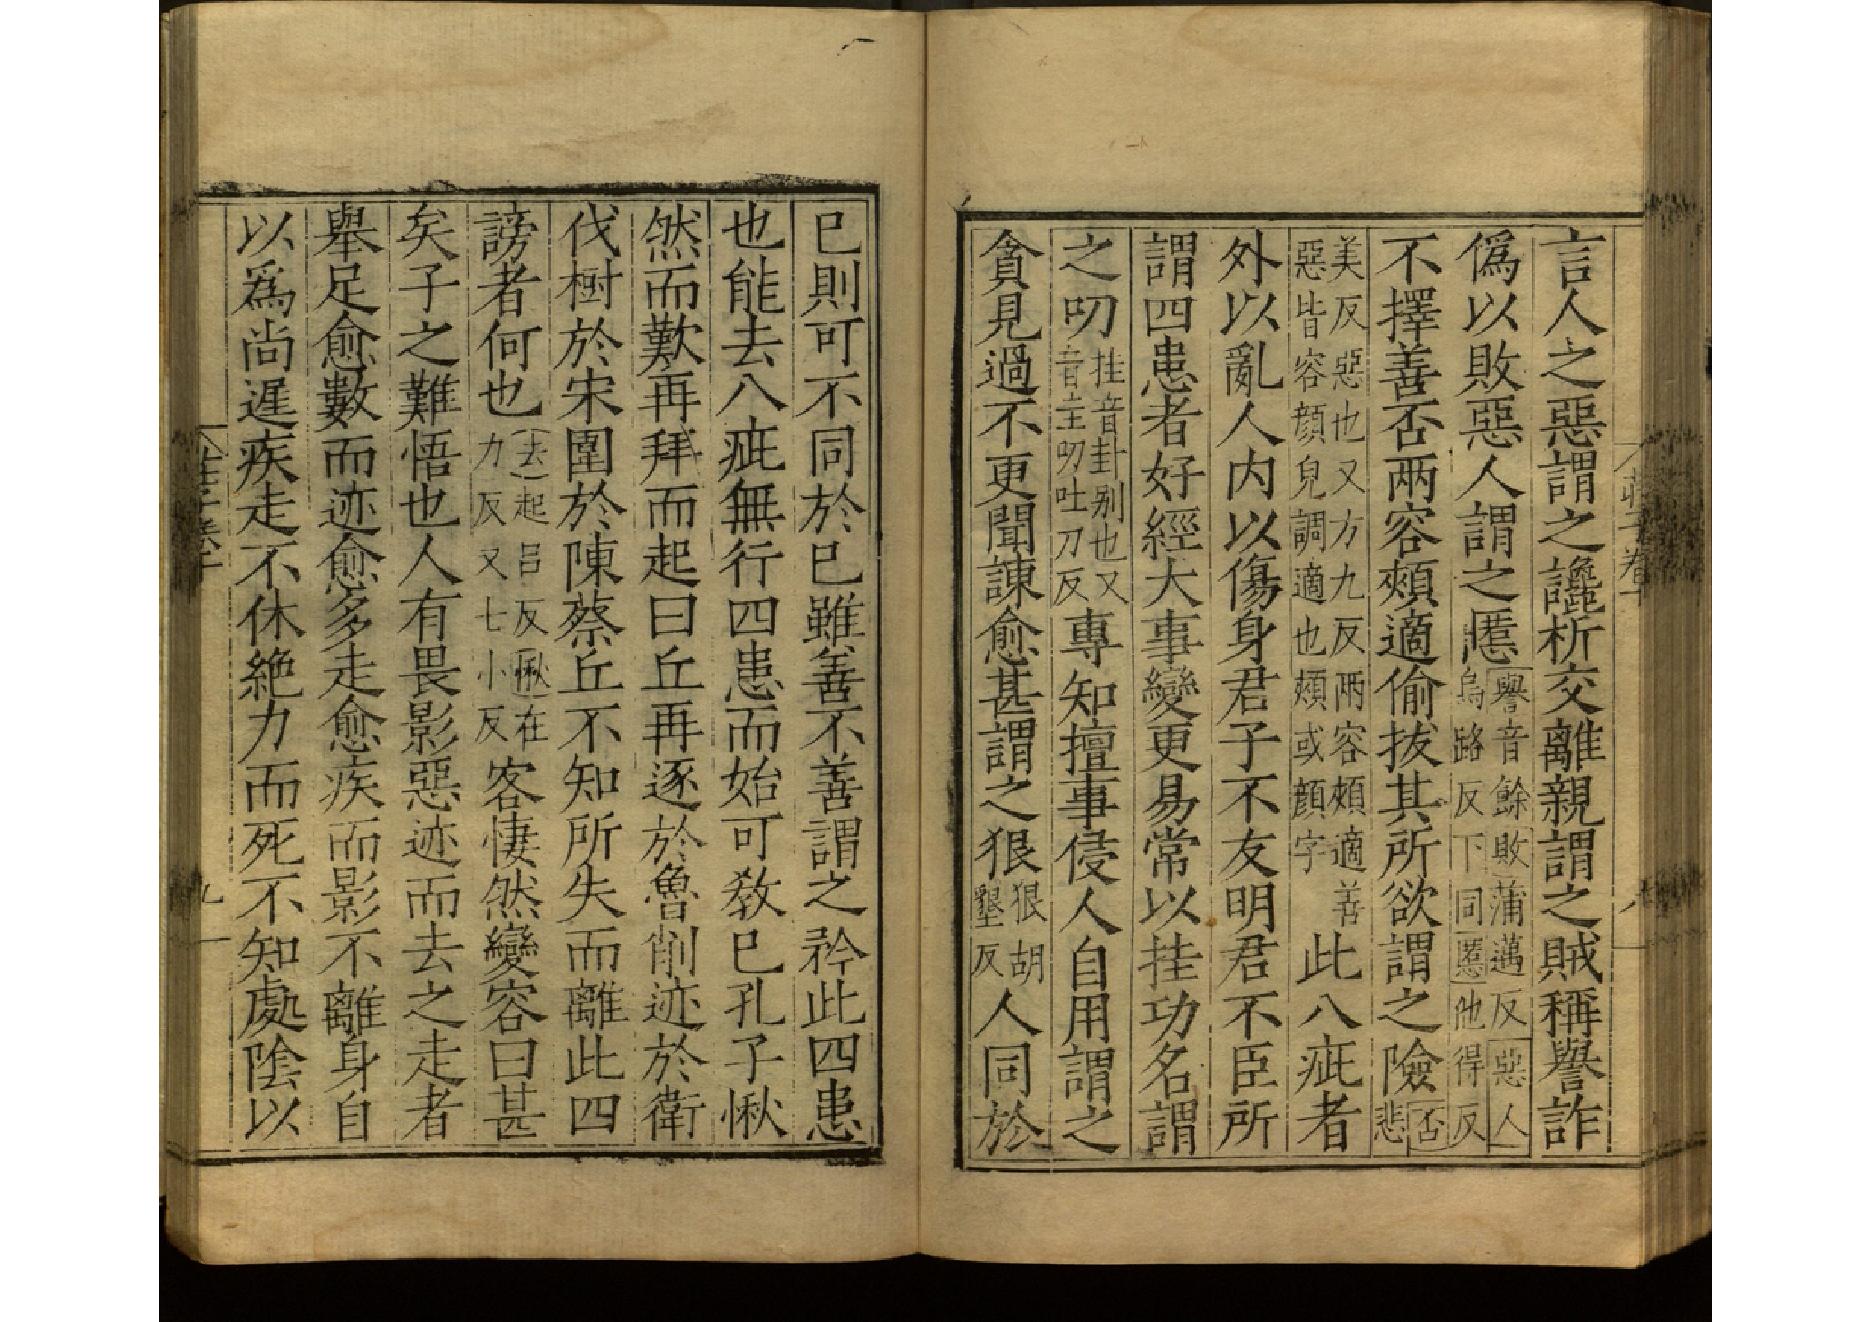 言人之惡謂之讒析交離親謂之賊稱譽詐
僞以敗惡人謂之慝譽音餘敗蒲邁反惡人烏路反下同慝他得反
不擇善否兩容頰適偷拔其所欲謂之險否悲
美反惡也又方九反兩容頰適善惡皆容顏皃調適也頰或顔字此八疵者
外以亂人内以傷身君子不友明君不臣所
謂四患者好經大事變更易常以挂功名謂
之叨挂音卦别也又音圭叨吐刀反專知擅事侵人自用謂之
貪見過不更聞諫愈甚謂之狠狠胡墾反人同於
已則可不同於已雖善不善謂之矜此四患
也能去八疵無行四患而始可教已孔子愀
然而歎再拜而起曰丘再逐於魯削迹於衛
伐樹於宋圍於陳蔡丘不知所失而離此四
謗者何也去起吕反愀在力反又七小反客悽然變容曰甚
矣子之難悟也人有畏影惡迹而去之走者
舉足愈數而迹愈多走愈疾而影不離身自
以爲尚遲疾走不休絶力而死不知處陰以
莊子卷十
九